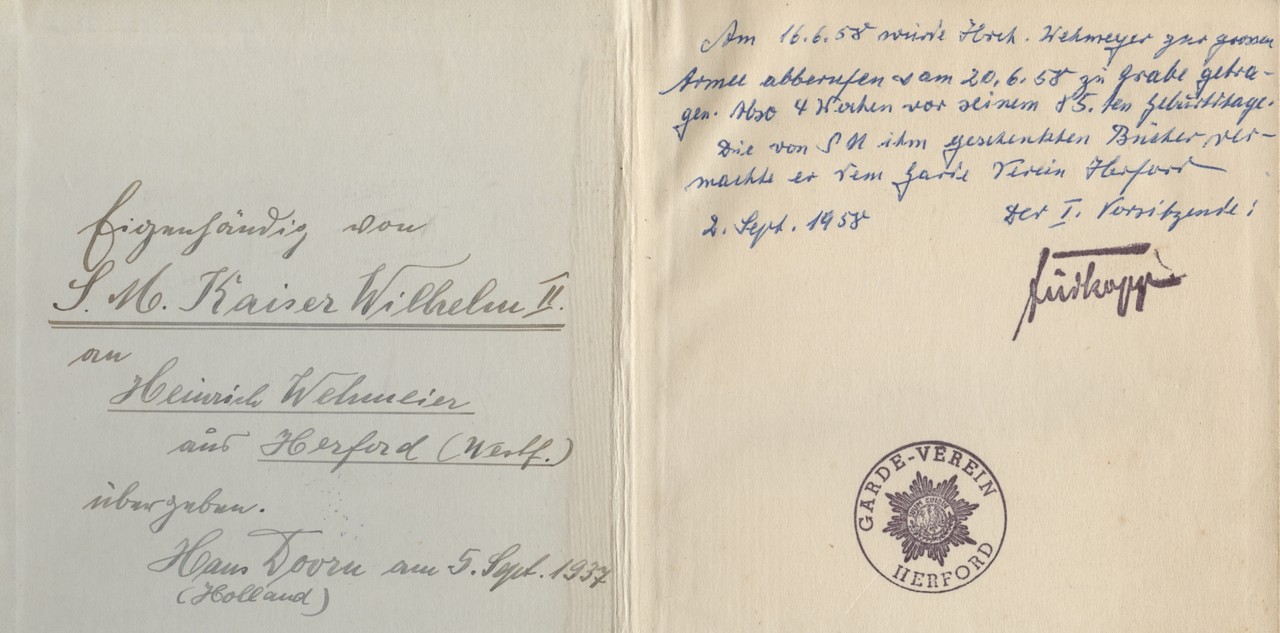 Eigenhändig von
S. M. Kaiser Wilhelm II.
an
Heinrich Wehmeier
aus Herford (Westf.)
übergeben.
Haus Doorn am 5. Sept. 1937
(Holland)
Am 16.6.58 wurde Hrch. Wehmeyer zur grossen
Armee abberufen u am 20.6.58 zu Grabe getra-
gen. Also 4 Wochen vor seinem 85.ten Geburtstage.
Die von SM ihm geschenkten Bücher ver-
machte er dem Garde Verein Herford
2. Sept. 1958 Der I. Vorsitzende:
GARDE-VEREIN
HERFORD